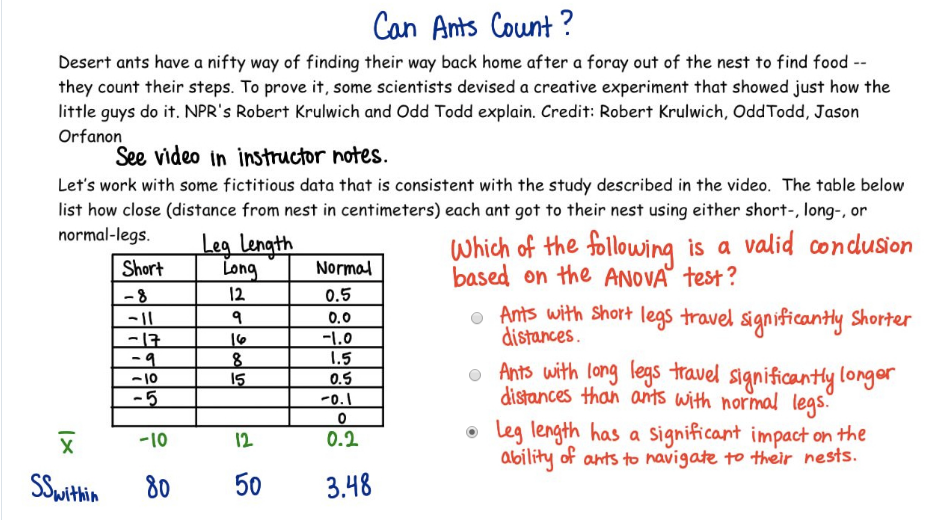 Can Ants Count?
Desert ants have a nifty way of finding their way back home after a foray out of the nest to find food --
they count their steps. To prove it, some scientists devised a creative experiment that showed just how the
little guys do it. NPR's Robert Krulwich and Odd Todd explain. Credit: Robert Krulwich, OddTodd, Jason
Orfanon
See video in instructor notes.
Let's work with some fictitious data that is consistent with the study described in the video. The table below
list how close (distance from nest in centimeters) each ant got to their nest using either short-, long-, or
normal-legs.
Leg Length
Short Long Normal
-8 12 0.5
-11 9 0.0
-17 16 -1.0
-9 8 1.5
-10 15 0.5
-5 -0.1
0
X̄ -10 12 0.2
SSwithin 80 50 3.48
Which of the following is a valid conclusion
based on the ANOVA test?
Ants with short legs travel significantly shorter
distances.
Ants with long legs travel significantly longer
distances than ants with normal legs.
Leg length has a significant impact on the
ability of ants to navigate to their nests.